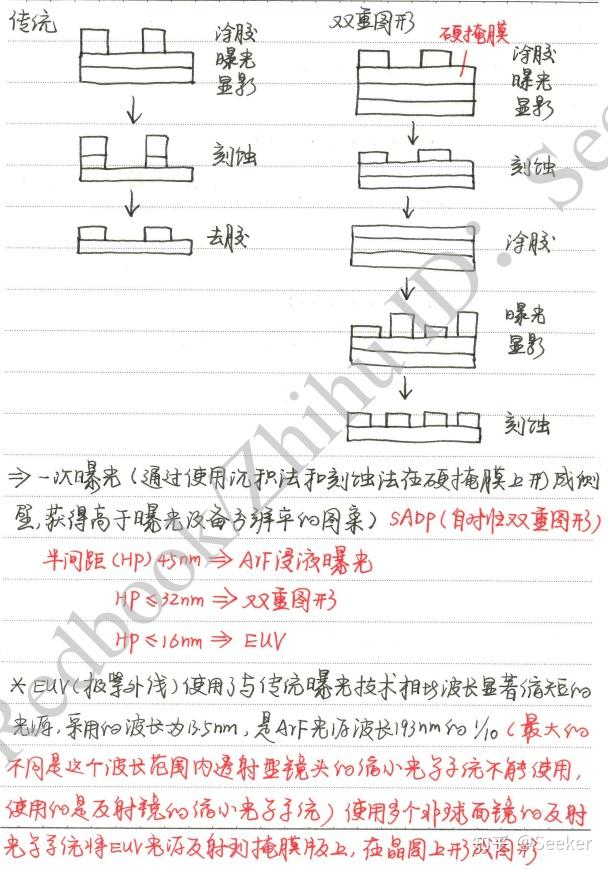 传统
涂胶
曝光
显影
刻蚀
去胶
双重图形
硬掩膜
涂胶
曝光
显影
刻蚀
涂胶
曝光
显影
刻蚀
⇒ 一次曝光（通过使用沉积法和刻蚀法在硬掩膜上形成侧
壁,获得高于曝光设备分辨率的图案）SADP（自对准双重图形）
半间距(HP) 45nm ⇒ ArF浸液曝光
HP≤32nm ⇒ 双重图形
HP≤16nm ⇒ EUV
※ EUV(极紫外线)使用了与传统曝光技术相比波长显著缩短的
光源,采用的波长为13.5nm,是ArF光源波长193nm的1/10（最大的
不同是这个波长范围内透射型镜头的缩小光学系统不能使用,
使用的是反射镜的缩小光学系统）使用多个非球面镜的反射
光学系统将EUV光源反射到掩膜版上,在晶圆上形成图形
Redbook/Zhihu ID: See
知乎 @Seeker